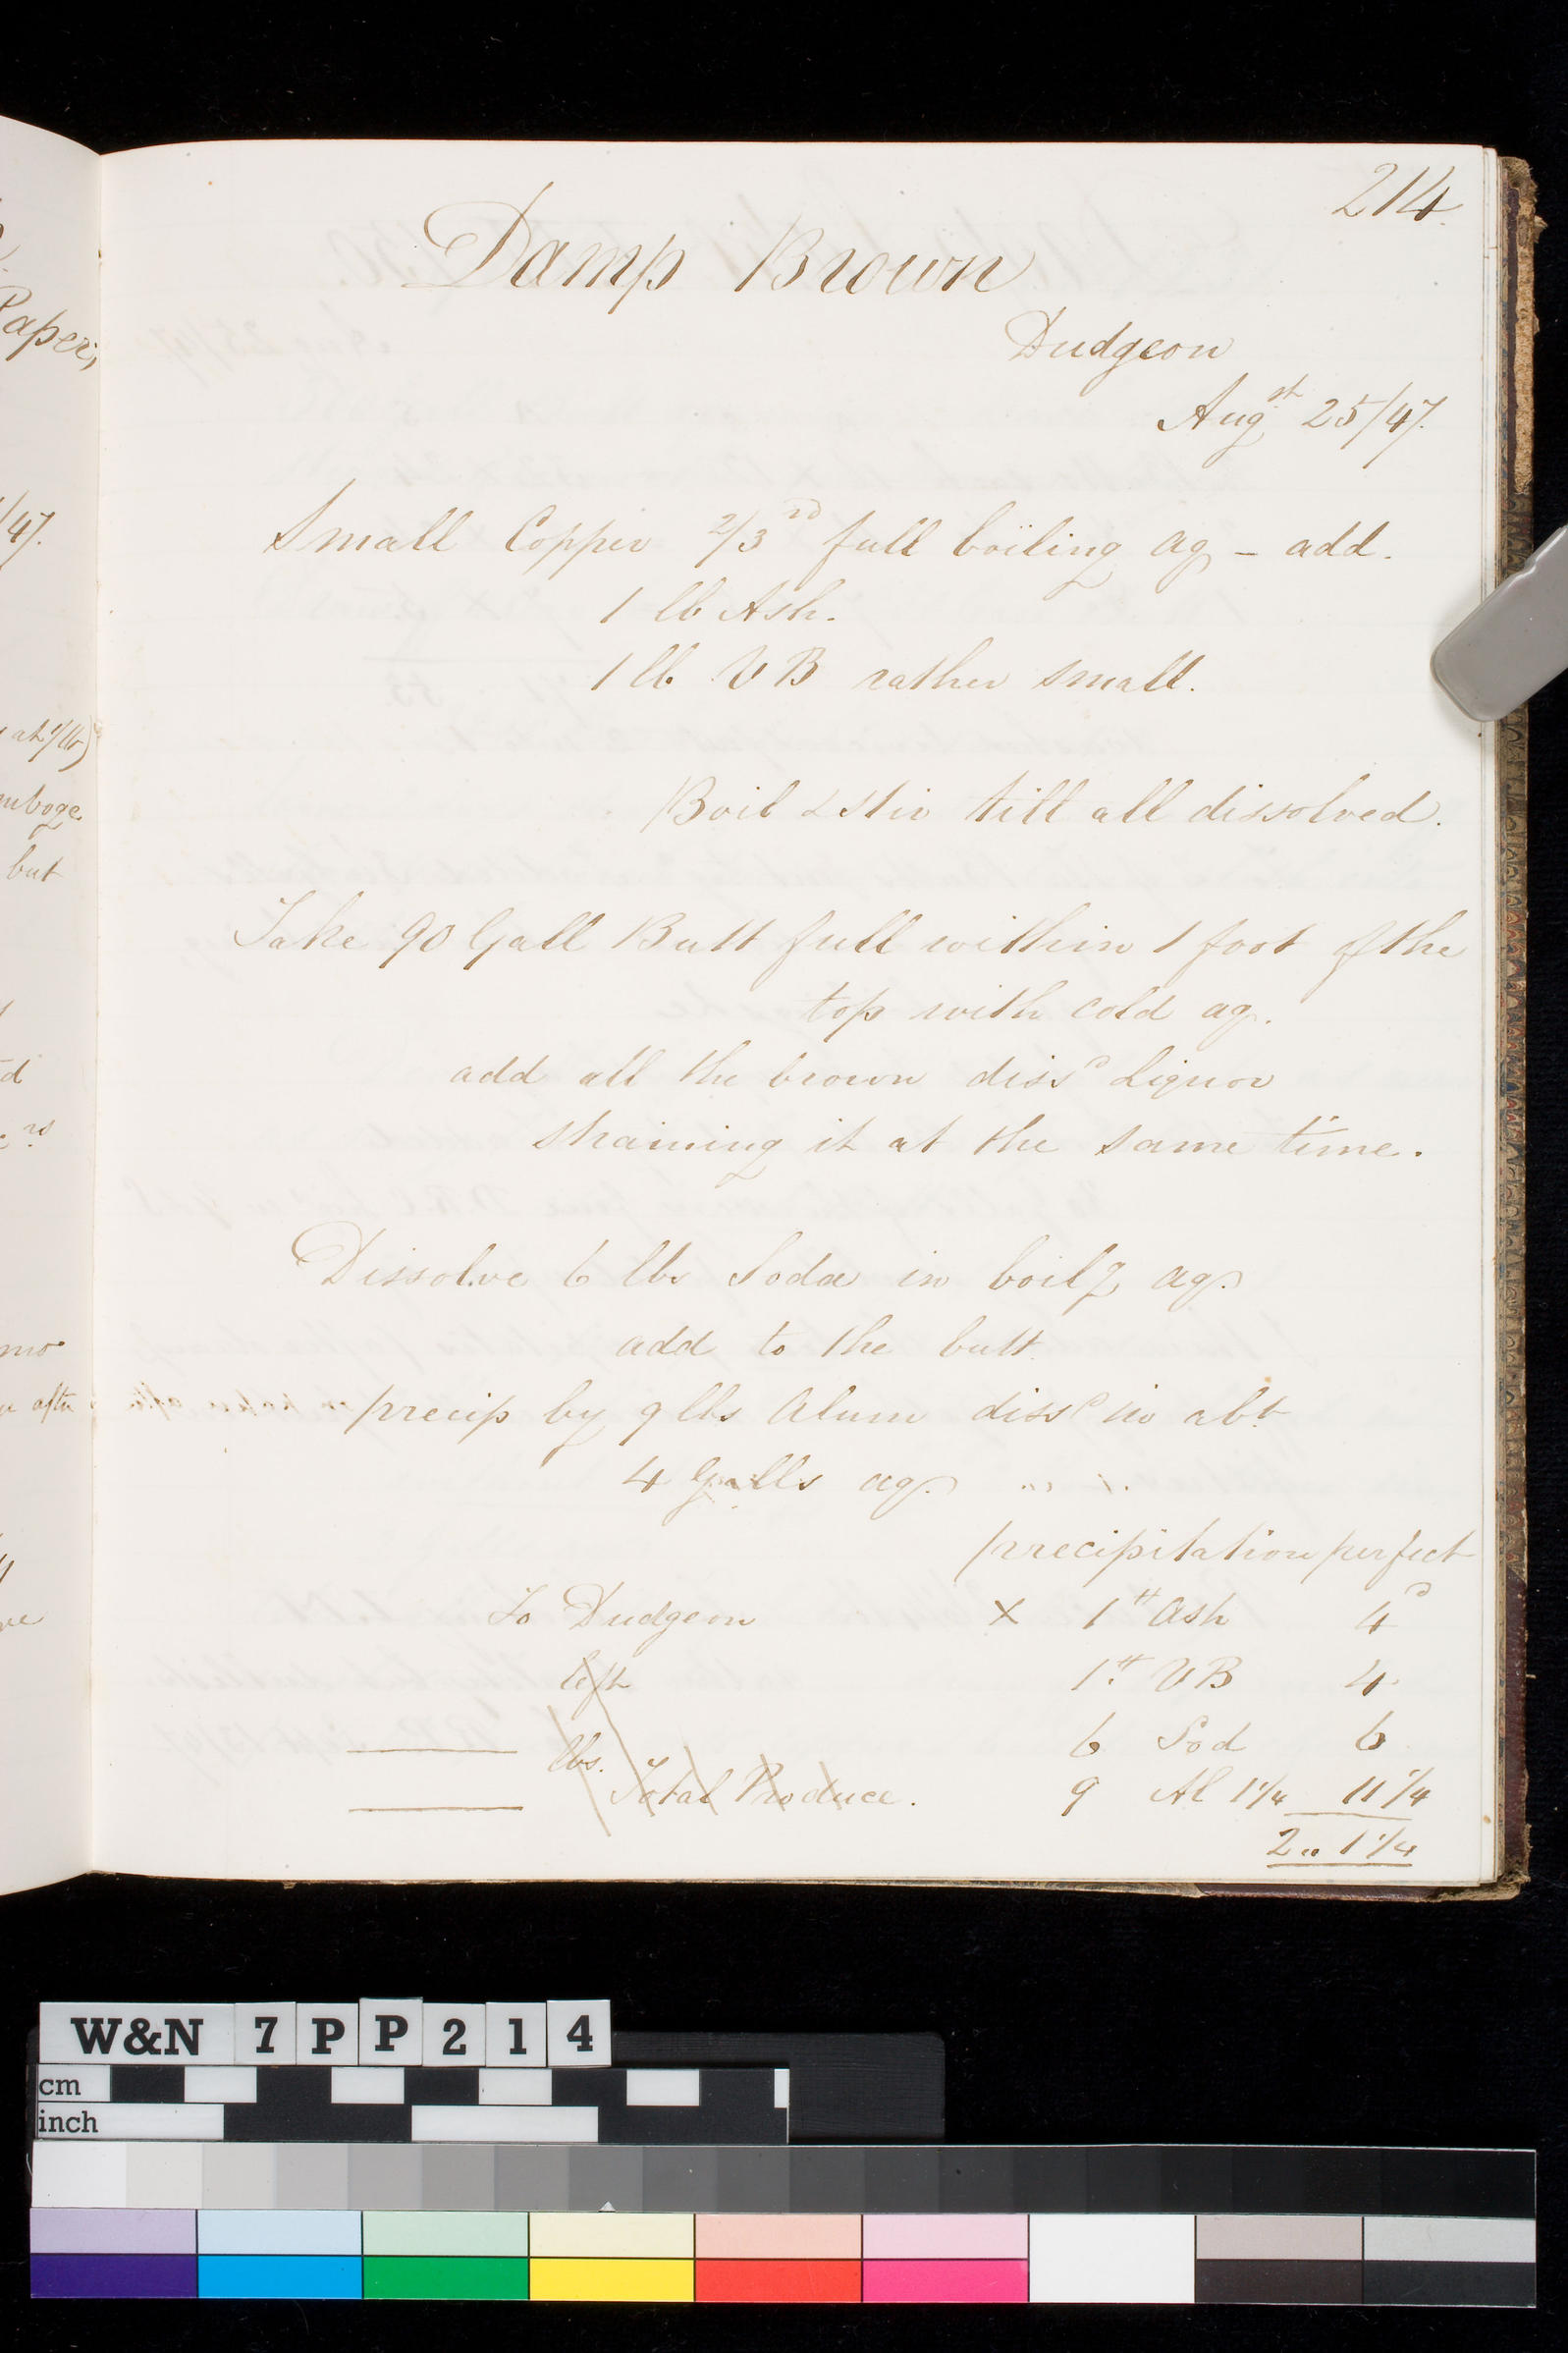 214.
Damp Brown
Dudgeon
Augst 25/47.
Small Copper 2/3rd full boiling aq - add.
1 lb Ash.
1 lb VB rather small.
Boil & stir till all dissolved.
Take 90 Gall Butt full within 1 foot of the
top with cold aq.
add all the brown dissd Liquor
straining it at the same time.
Dissolve 6 lbs Soda in boilg aq.
add to the butt.
precip by 9 lbs Alum dissd in abt
4 Galls aq.
precipitation perfect
To Dudgeon
left
lbs.
Total Produce.
x 1 lb Ash 4d
1 lb VB 4
6 Sod 6
9 Al 1 1/4 11 1/4
2 " 1 1/4
Paper,
/47.
at 1/lb)
mboge.
but
d
mo
after
W&N 7PP214
cm
inch